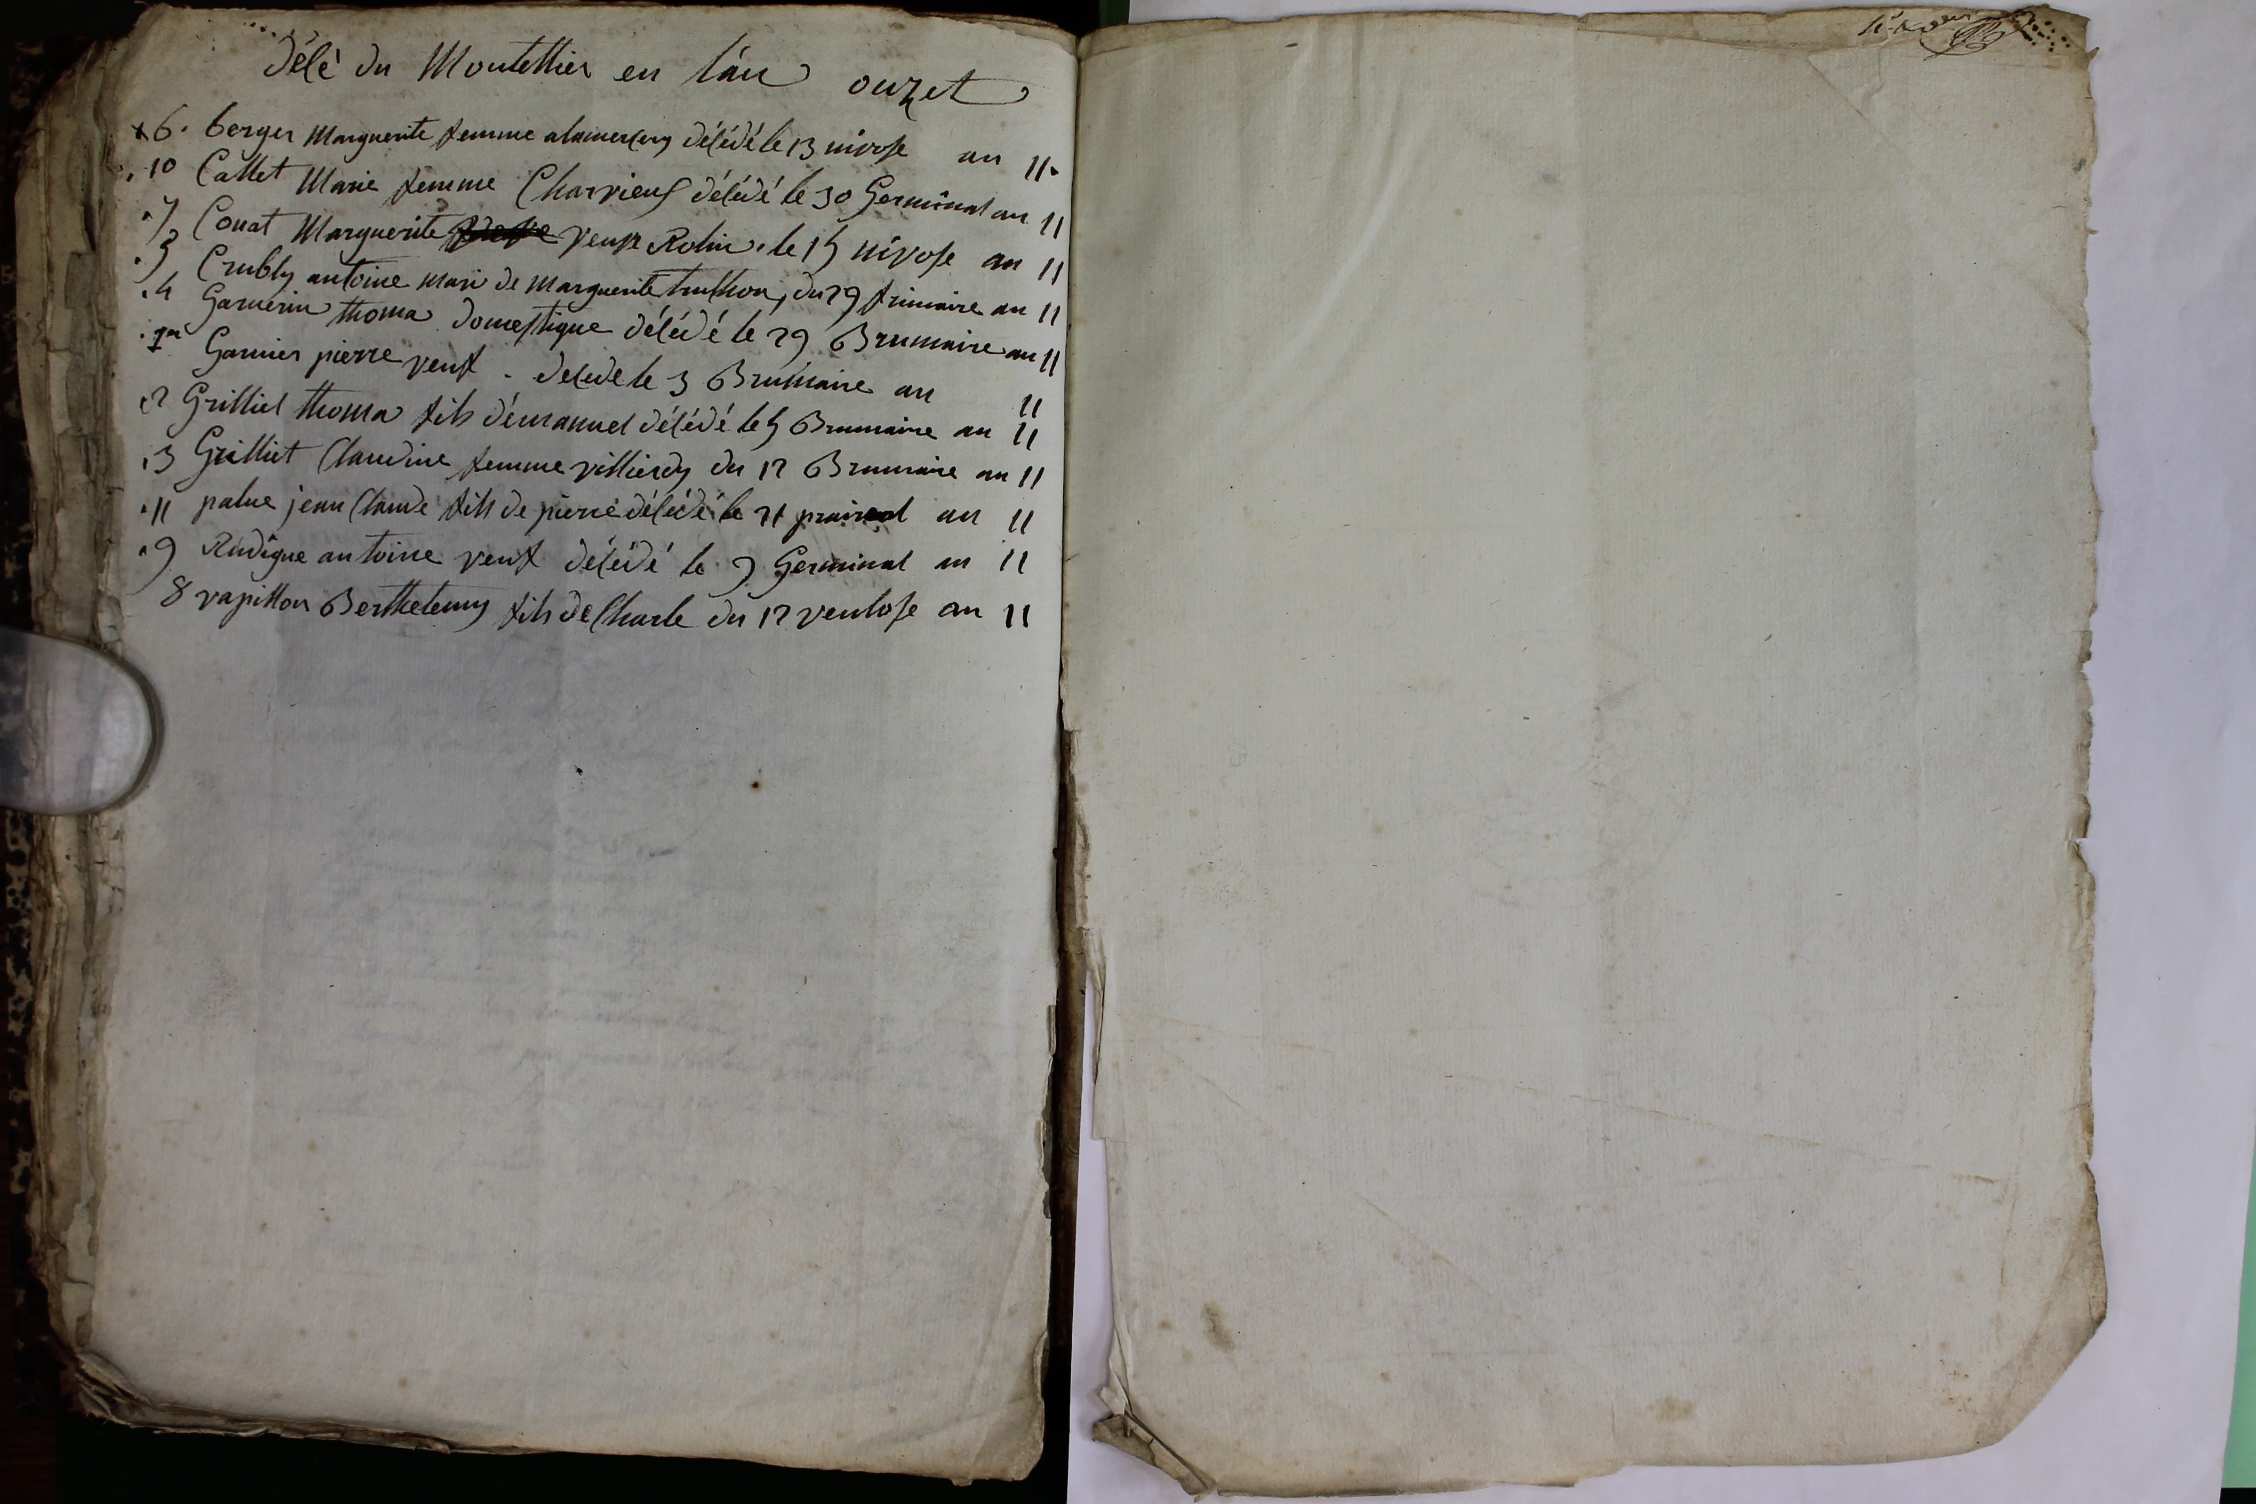 délé du Montellier en l'an onzet
6. berger Marguerite femme alamercery délédé le 13 nivose an 11.
10 Callet Marie femme Charvieux délédé le 30 Germinal an 11
7 Conat Marguerite veuve Rolin. le 15 nivose an 11
5 Crubly antoine mari de Marguerite truchon, du 29 frimaire an 11
4 Garnerin thoma domestique délédé le 29 Brumaire an 11
1er Garnier pierre veuf. delede le 3 Brumaire an 11
2 Grilliet thoma fils d'émanuel délédé le 5 Brumaire an 11
3 Grilliet Claudine femme villierdy du 12 Brumaire an 11
11 palue jean Claude fils de pierre délédé le 21 prairial an 11
9 Rudigue antoine veuf délédé le 9 Germinal an 11
8 vapillon Berthelemy fils de Charle du 12 ventose an 11